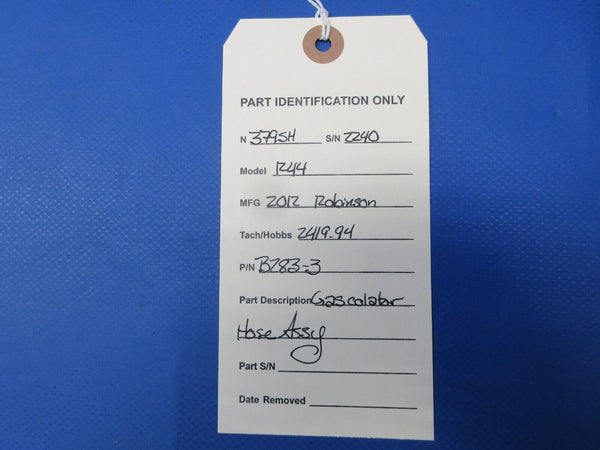 PART IDENTIFICATION ONLY
N 379SH S/N 2240
Model R44
MFG 2012 Robinson
Tach/Hobbs 2419.94
P/N B283-3
Part Description Gascolator
Hose Assy
Part S/N
Date Removed